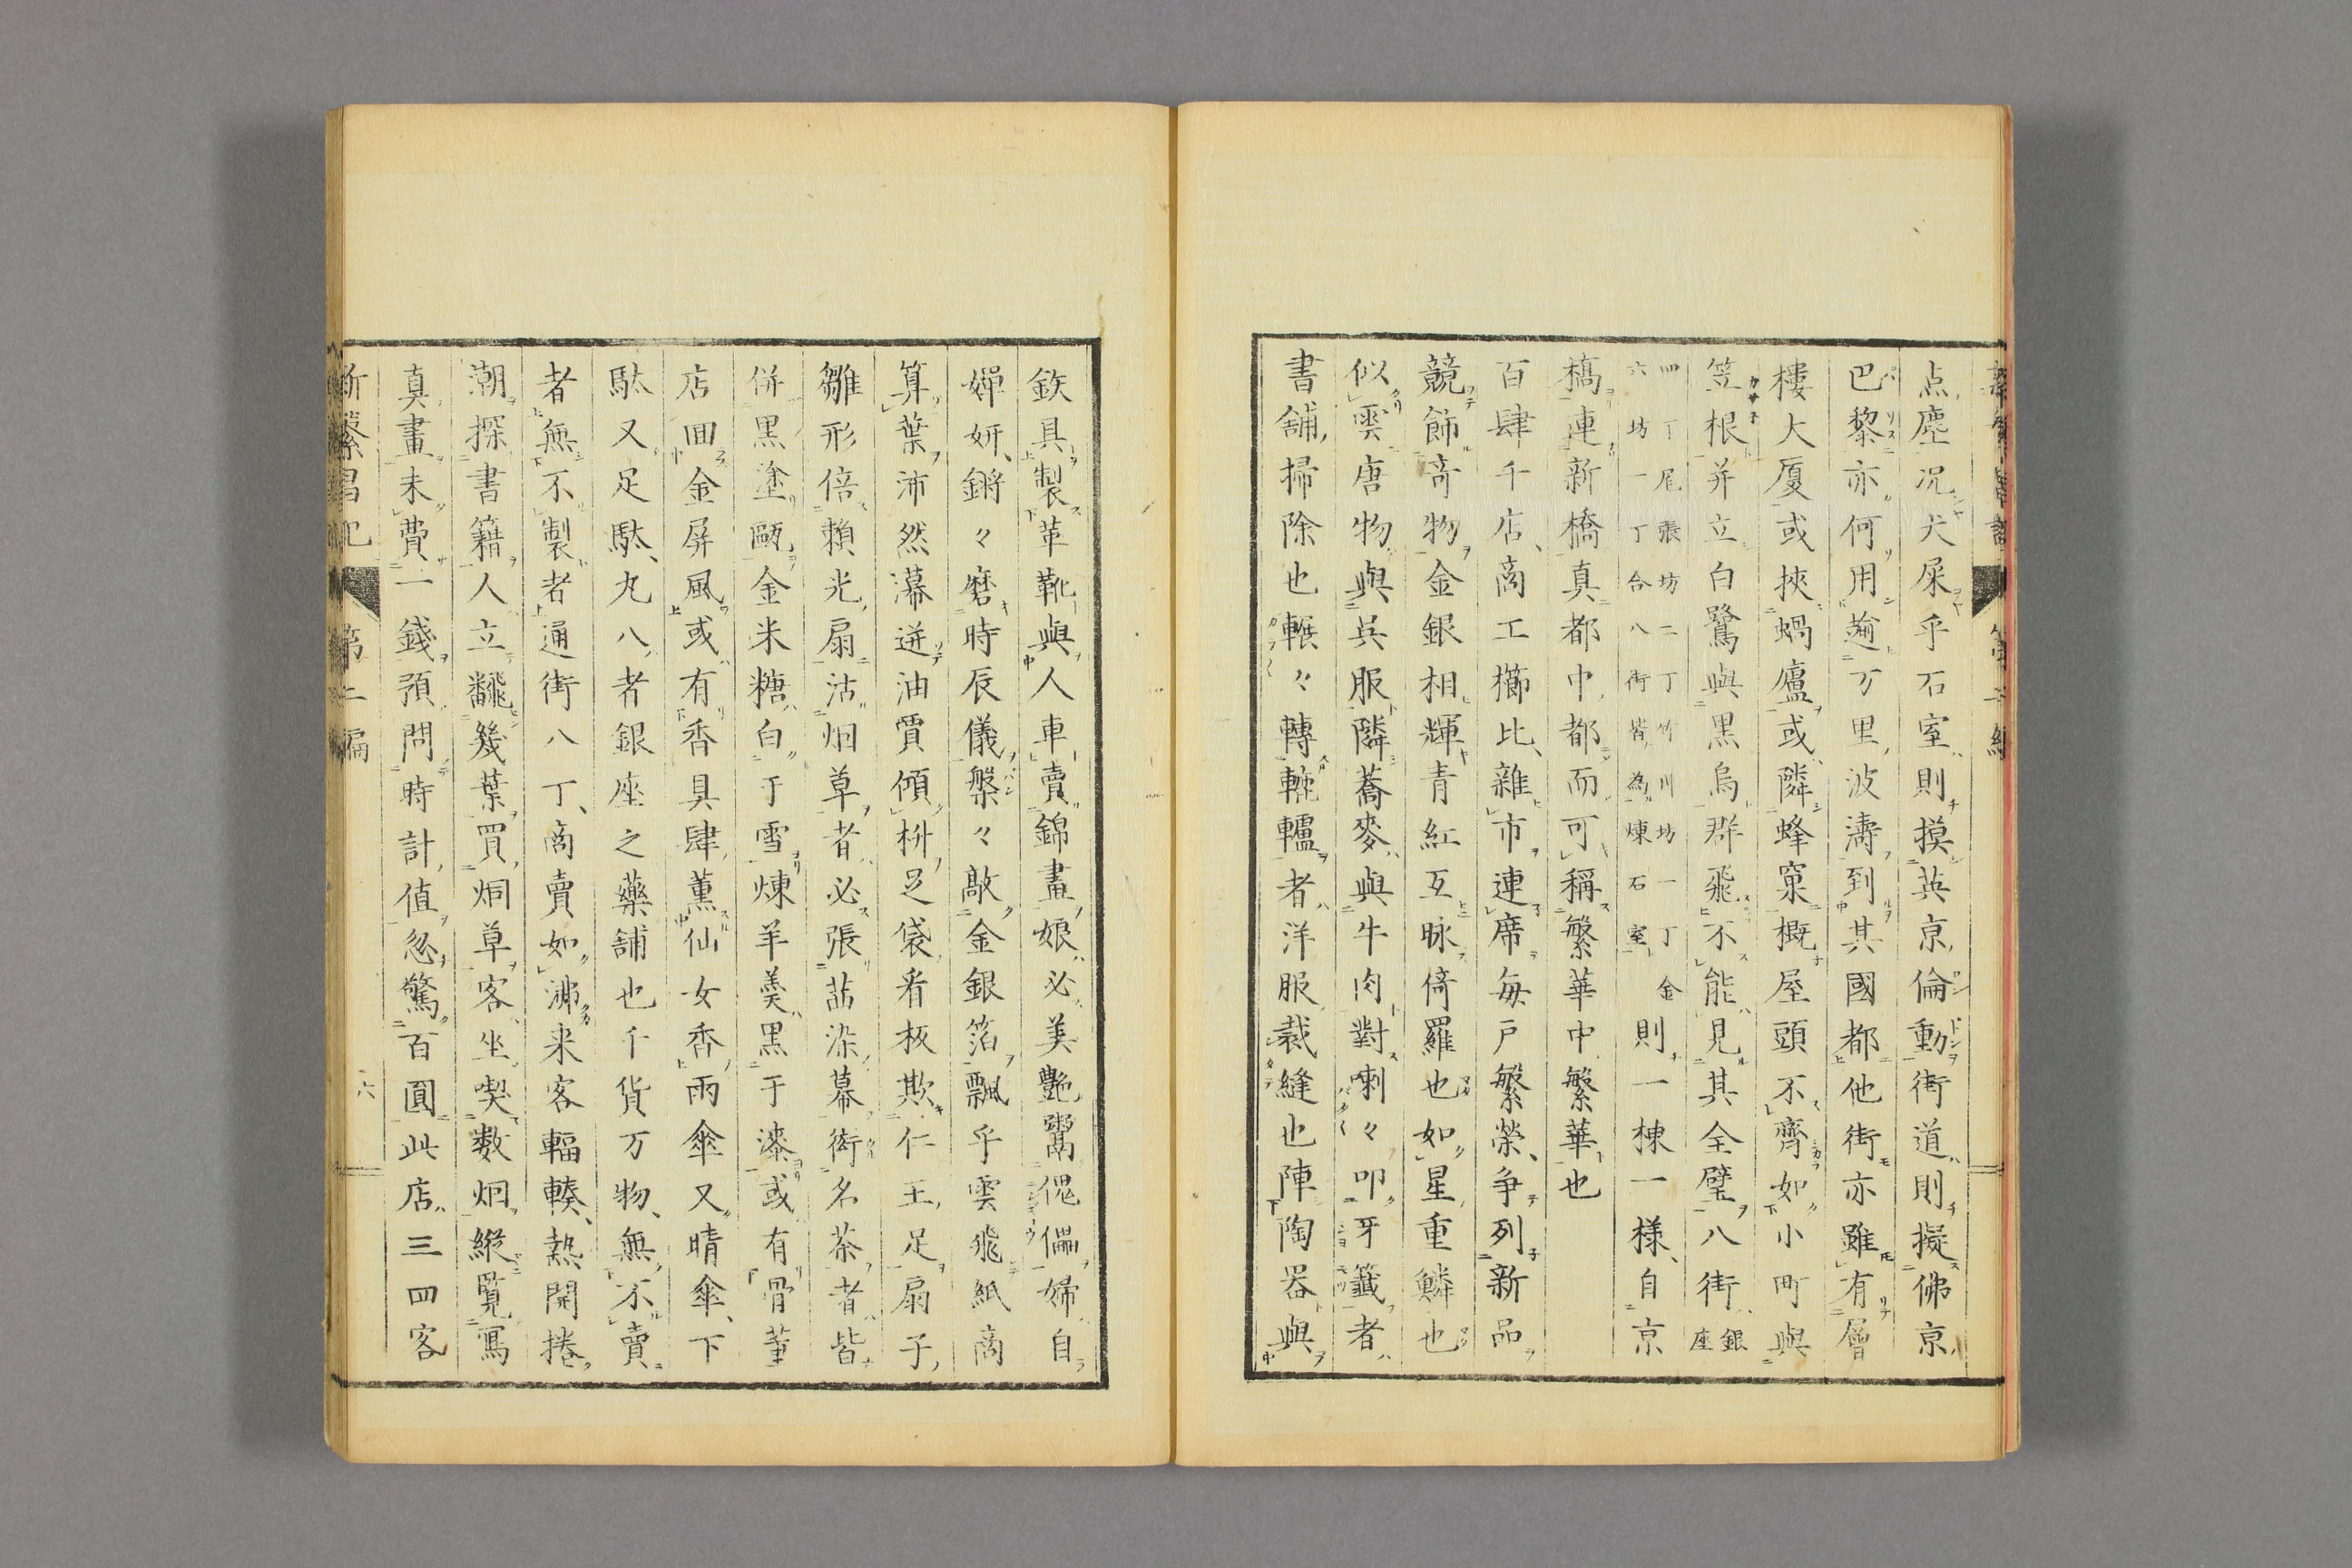 点塵况犬屎乎石室則摸英京倫動街道則擬佛京
巴黎亦何用踰万里波濤到其國都他街亦雖有層
樓大厦或挾蝸廬或隣蜂窠概屋頭不齊如小町與
笠根并立白鷺與黒烏群飛不能見其全璧八街銀座
四丁尾張坊二丁竹川坊一丁金
六坊一丁合八街皆為煉石室
則一棟一様自京
橋連新橋真都中都而可稱繁華中繁華也
百肆千店商工櫛比雜市連席毎戸繁榮争列新品
競飾竒物金銀相輝青紅互映倚羅也如星重鱗也
似雲唐物與呉服隣蕎麥與牛肉對喇々叩牙籤者
書舗掃除也輾々轉轆轤者洋服裁縫也陣陶器與
鉄具製革靴與人車賣錦畫娘必美艶鬻傀儡婦自
嬋妍鏘々磨時辰儀槃々敲金銀箔飄乎雲飛紙商
算葉沛然瀑迸油賈傾枡足袋看板欺仁王足扇子
雛形倍頼光扇沽烟草者必張茜染幕衒名茶者皆
併黒塗甌金米糖白于雪煉羊羹黒于漆或有骨董
店囬金屏風或有香具肆薫仙女香雨傘又晴傘下
駄又足駄丸八者銀座之藥舗也千貨万物無不賣
者無不製者通街八丁商賣如沸来客輻輳熱閙捲
潮探書籍人立飜幾葉買烟草客坐喫数烟縦覧寫
真畫未費一錢預問時計値忽驚百圓此店三四客
新繁昌記 第二編 六